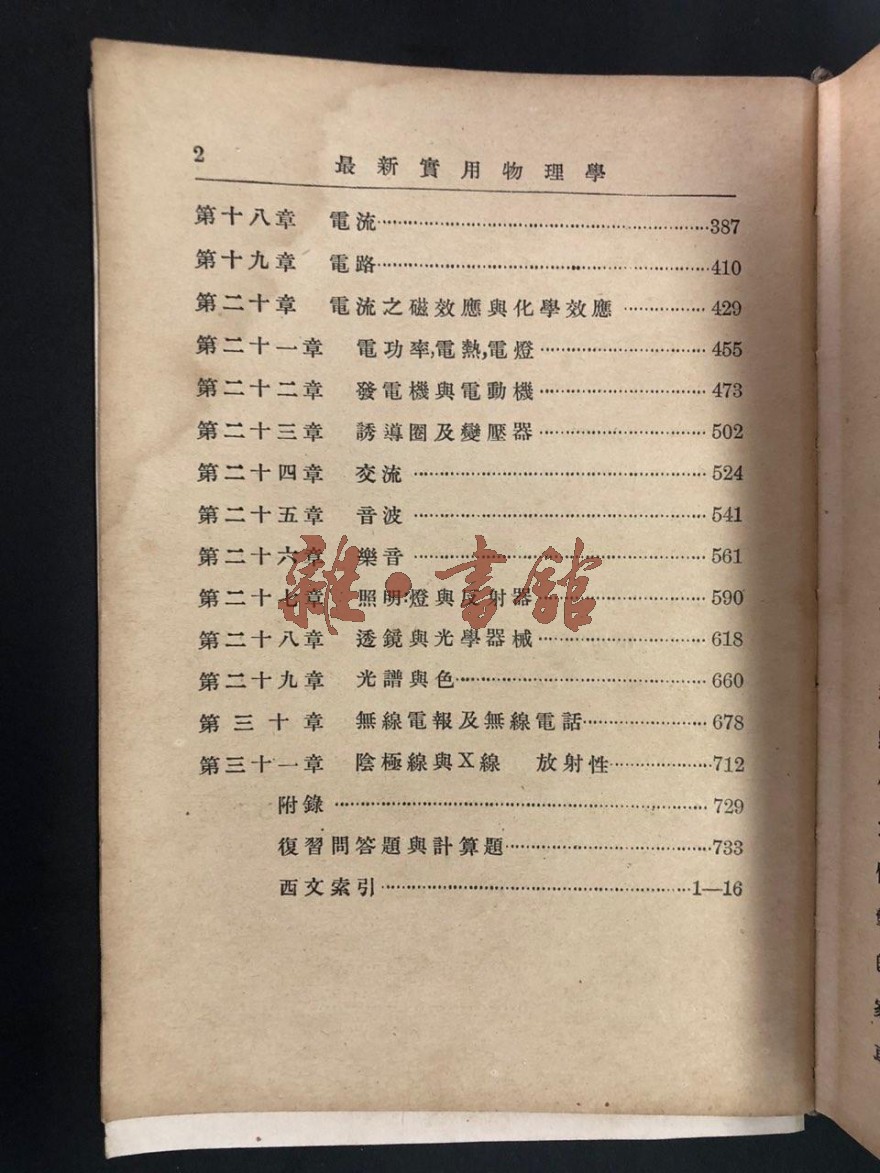 2
最新實用物理學
第十八章 電流……387
第十九章 電路……410
第二十章 電流之磁效應與化學效應……429
第二十一章 電功率,電熱,電燈……455
第二十二章 發電機與電動機……473
第二十三章 誘導圈及變壓器……502
第二十四章 交流……524
第二十五章 音波……541
第二十六章 樂音……561
第二十七章 照明:燈與反射器……590
第二十八章 透鏡與光學器械……618
第二十九章 光譜與色……660
第三十章 無線電報及無線電話……678
第三十一章 陰極線與X線 放射性……712
附錄……729
復習問答題與計算題……733
西文索引……1—16
雜·書館